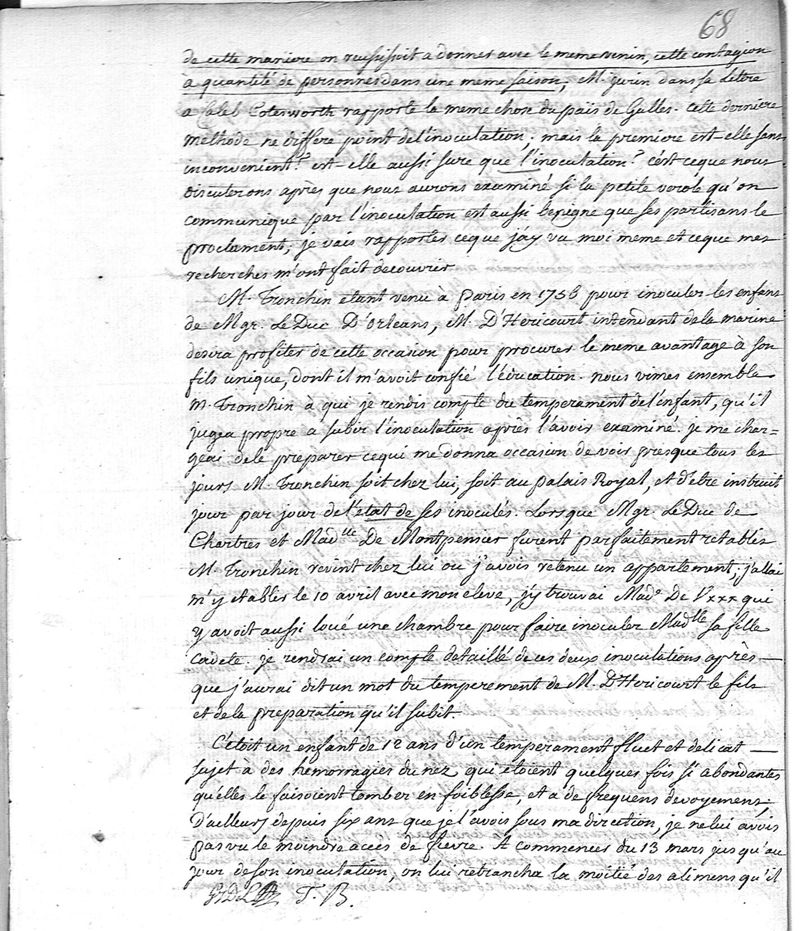 68
de cette maniere on reussissoit a donner avec le meme venin, cette contagion
à quantité de personnes dans une meme saison, M. Jurin dans sa lettre
a Caleb Cotesworth rapporte la meme chose du païs de Galles. cette derniere
methode ne differe point de l'inoculation, mais la premiere est-elle sans
inconvenient? est-elle aussi sure que l'inoculation? c'est ceque nous
discuterons après que nous aurons examiné si la petite verole qu'on
communique par l'inoculation est aussi benigne que ses partisans le
proclament, je vais rapporter ceque j'ay vu moi meme et ceque mes
recherches m'ont fait decouvrir
M. Tronchin etant venu à Paris en 1756 pour inoculer les enfans
de Mgr. Le Duc D'Orleans, M. D'Hericourt intendant de la marine
desira profiter de cette occasion pour procurer le meme avantage à son
fils unique, dont il m'avoit confié l'éducation. nous vimes ensemble
M. Tronchin à qui je rendis compte du temperament de l'enfant, qu'il
jugea propre a subir l'inoculation après l'avoir examiné. je me char-
geai de le preparer cequi me donna occasion de voir presque tous les
jours M. Tronchin soit chez lui, soit au palais Royal, et d'etre instruit
jour par jour de l'état de ses inoculés. Lorsque Mgr. Le Duc de
Chartres et Mad.lle De Montpensier furent parfaitement retablis
M. Tronchin revint chez lui ou j'avois retenu un appartement; j'allai
m'y etablir le 10 avril avec mon eleve, j'y trouvai Mad.e De Vxxx qui
y avoit aussi loué une chambre pour faire inoculer Mad.lle sa fille
cadete. je rendrai un compte detaillé de ces deux inoculations après
que j'aurai dit un mot du temperement de M. D'Hericourt le fils
et de la preparation qu'il subit.
C'etoit un enfant de 12 ans d'un temperament fluet et delicat
sujet à des hemorragies du nez qui etoient quelques fois si abondantes
qu'elles le faisoient tomber en foiblesse, et a de frequens devoyemens,
D'ailleurs depuis six ans que je l'avois sous ma direction, je ne lui avois
pas vu le moindre accès de fievre. A commencer du 13 mars jusqu'au
jour de son inoculation, on lui retrancha la moitié des alimens qu'il
T. B.